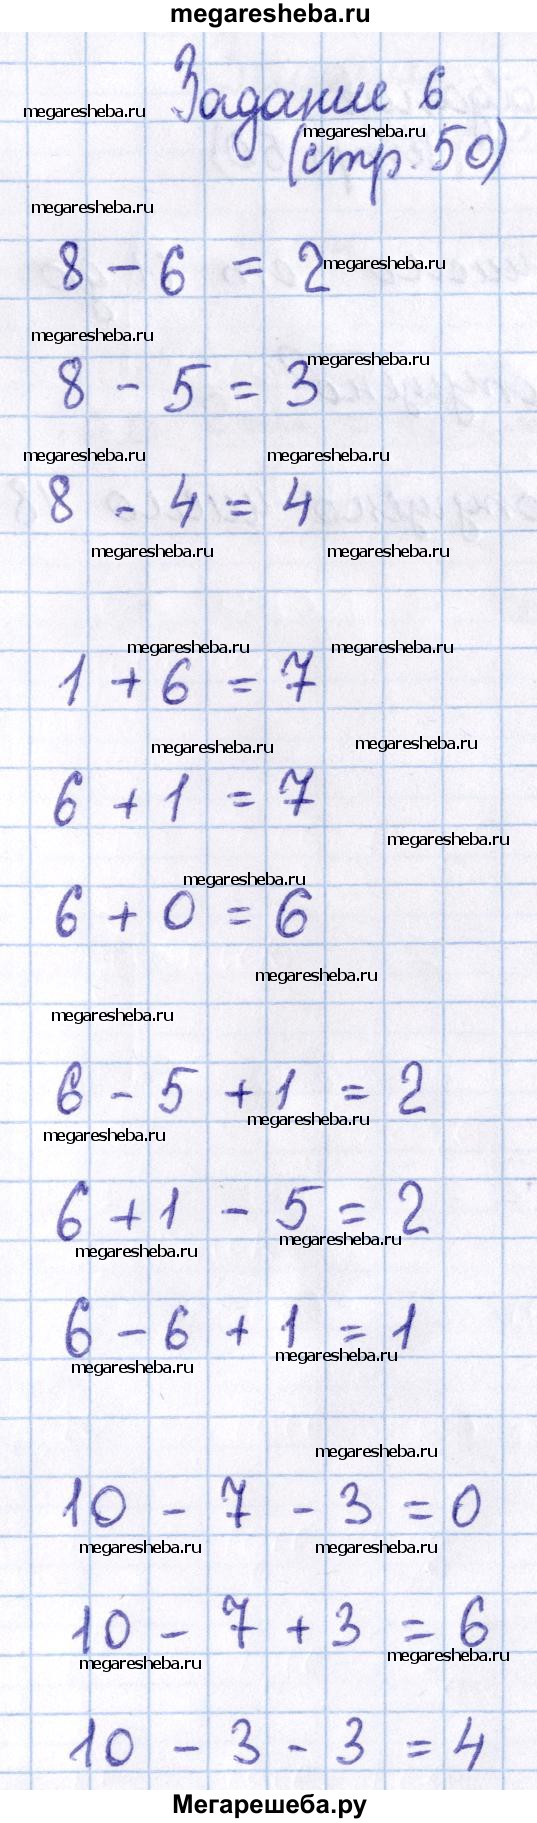 megaresheba.ru
Задание 6
megaresheba.ru
megaresheba.ru
(стр. 50)
megaresheba.ru
8 - 6 = 2
megaresheba.ru
megaresheba.ru
megaresheba.ru
8 - 5 = 3
megaresheba.ru megaresheba.ru
8 - 4 = 4
megaresheba.ru megaresheba.ru
megaresheba.ru megaresheba.ru
1 + 6 = 7
megaresheba.ru megaresheba.ru
6 + 1 = 7
megaresheba.ru
megaresheba.ru
6 + 0 = 6
megaresheba.ru
megaresheba.ru
6 - 5 + 1 = 2
megaresheba.ru
megaresheba.ru
6 + 1 - 5 = 2
megaresheba.ru
megaresheba.ru
6 - 6 + 1 = 1
megaresheba.ru
megaresheba.ru
megaresheba.ru
10 - 7 - 3 = 0
megaresheba.ru megaresheba.ru
10 - 7 + 3 = 6
megaresheba.ru megaresheba.ru
10 - 3 - 3 = 4
Мегарешеба.ру